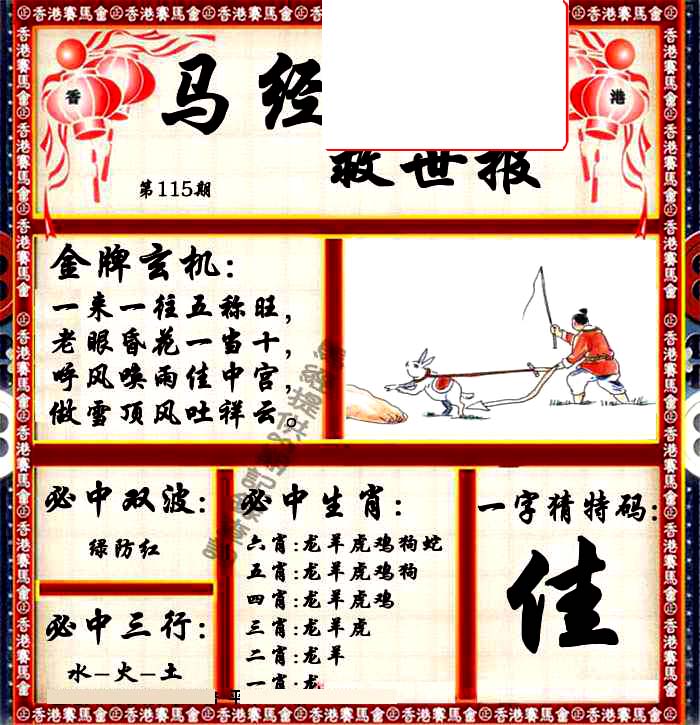 香港賽馬會 香港賽馬會 香港賽馬會 香港賽馬會 香港賽馬會 香港賽馬會 香港賽馬會
香
港
马经
救世报
第115期
金牌玄机:
一来一往五称旺,
老眼昏花一当十,
呼风唤雨佳中宫,
做雪顶风吐祥云。
必中双波:
绿防红
必中三行:
水-火-土
必中生肖:
六肖:龙羊虎鸡狗蛇
五肖:龙羊虎鸡狗
四肖:龙羊虎鸡
三肖:龙羊虎
二肖:龙羊
一肖:龙
一字猜特码:
佳
香港賽馬會 香港賽馬會 香港賽馬會 香港賽馬會 香港賽馬會 香港賽馬會 香港賽馬會